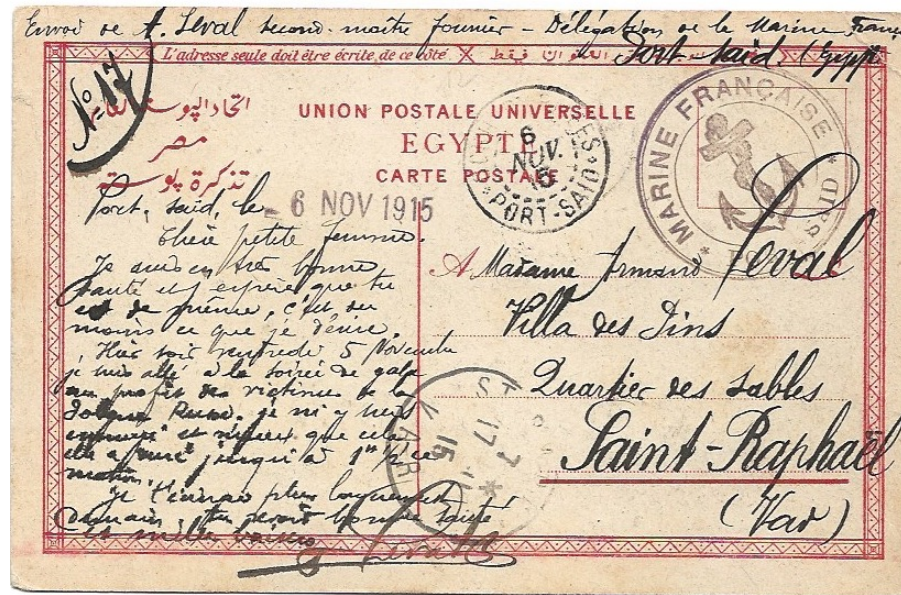 Envoi de A. Leval second-maître fourrier – Délégation de la Marine França
Port-Saïd (Egypte
L'adresse seule doit être écrite de ce côté
العنوان فقط
No 17
اتحاد البوستة العام
مصر
تذكرة بوستة
UNION POSTALE UNIVERSELLE
EGYPTE
CARTE POSTALE
6
NOV.
15
PORT-SAID
MARINE FRANÇAISE
Port-Saïd, le
- 6 NOV 1915
Chère petite femme.
Je suis en très bonne
santé et espère que tu
es de même, c'est du
moins ce que je désire.
Hier soir vendredi 5 Novembre
je suis allé à la soirée de gala
au profit des victimes de la
je m'y suis
et que cela
jusqu'à 1h 1/2 du
matin.
Je t'écrirai plus longuement
demain. bonne santé
et mille baisers
Leval
A Madame Armand Leval
Villa des Pins
Quartier des Sables
Saint-Raphaël
(Var)
17
15
VAR